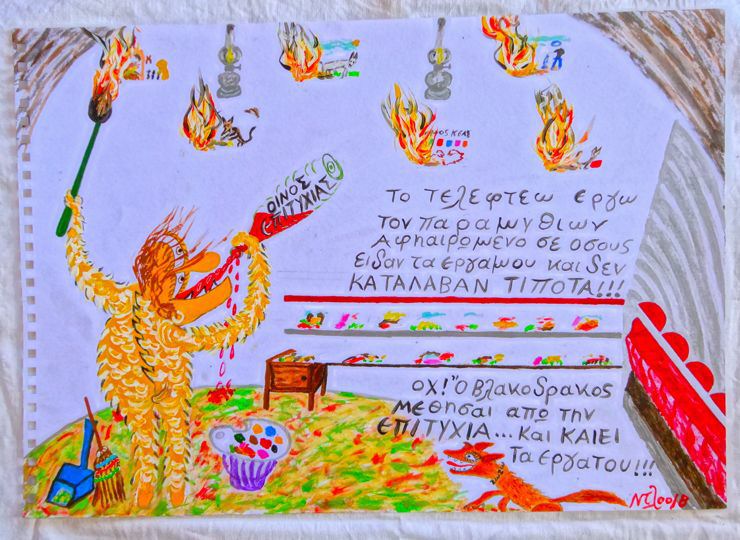 ΟΙΝΟΣ
ΕΠΙΤΥΧΙΑΣ
Το τελεφτεω εργω
τον παραμυθιων
Αφηαιρωμενο σε οσους
ειδαν τα εργα μου και δεν
ΚΑΤΑΛΑΒΑΝ ΤΙΠΟΤΑ!!!
ΟΧ! Ό Βλακοδρακος
μεθησαι απω την
ΕΠΙΤΥΧΙΑ... και ΚΑΙΕΙ
τα εργα του!!!